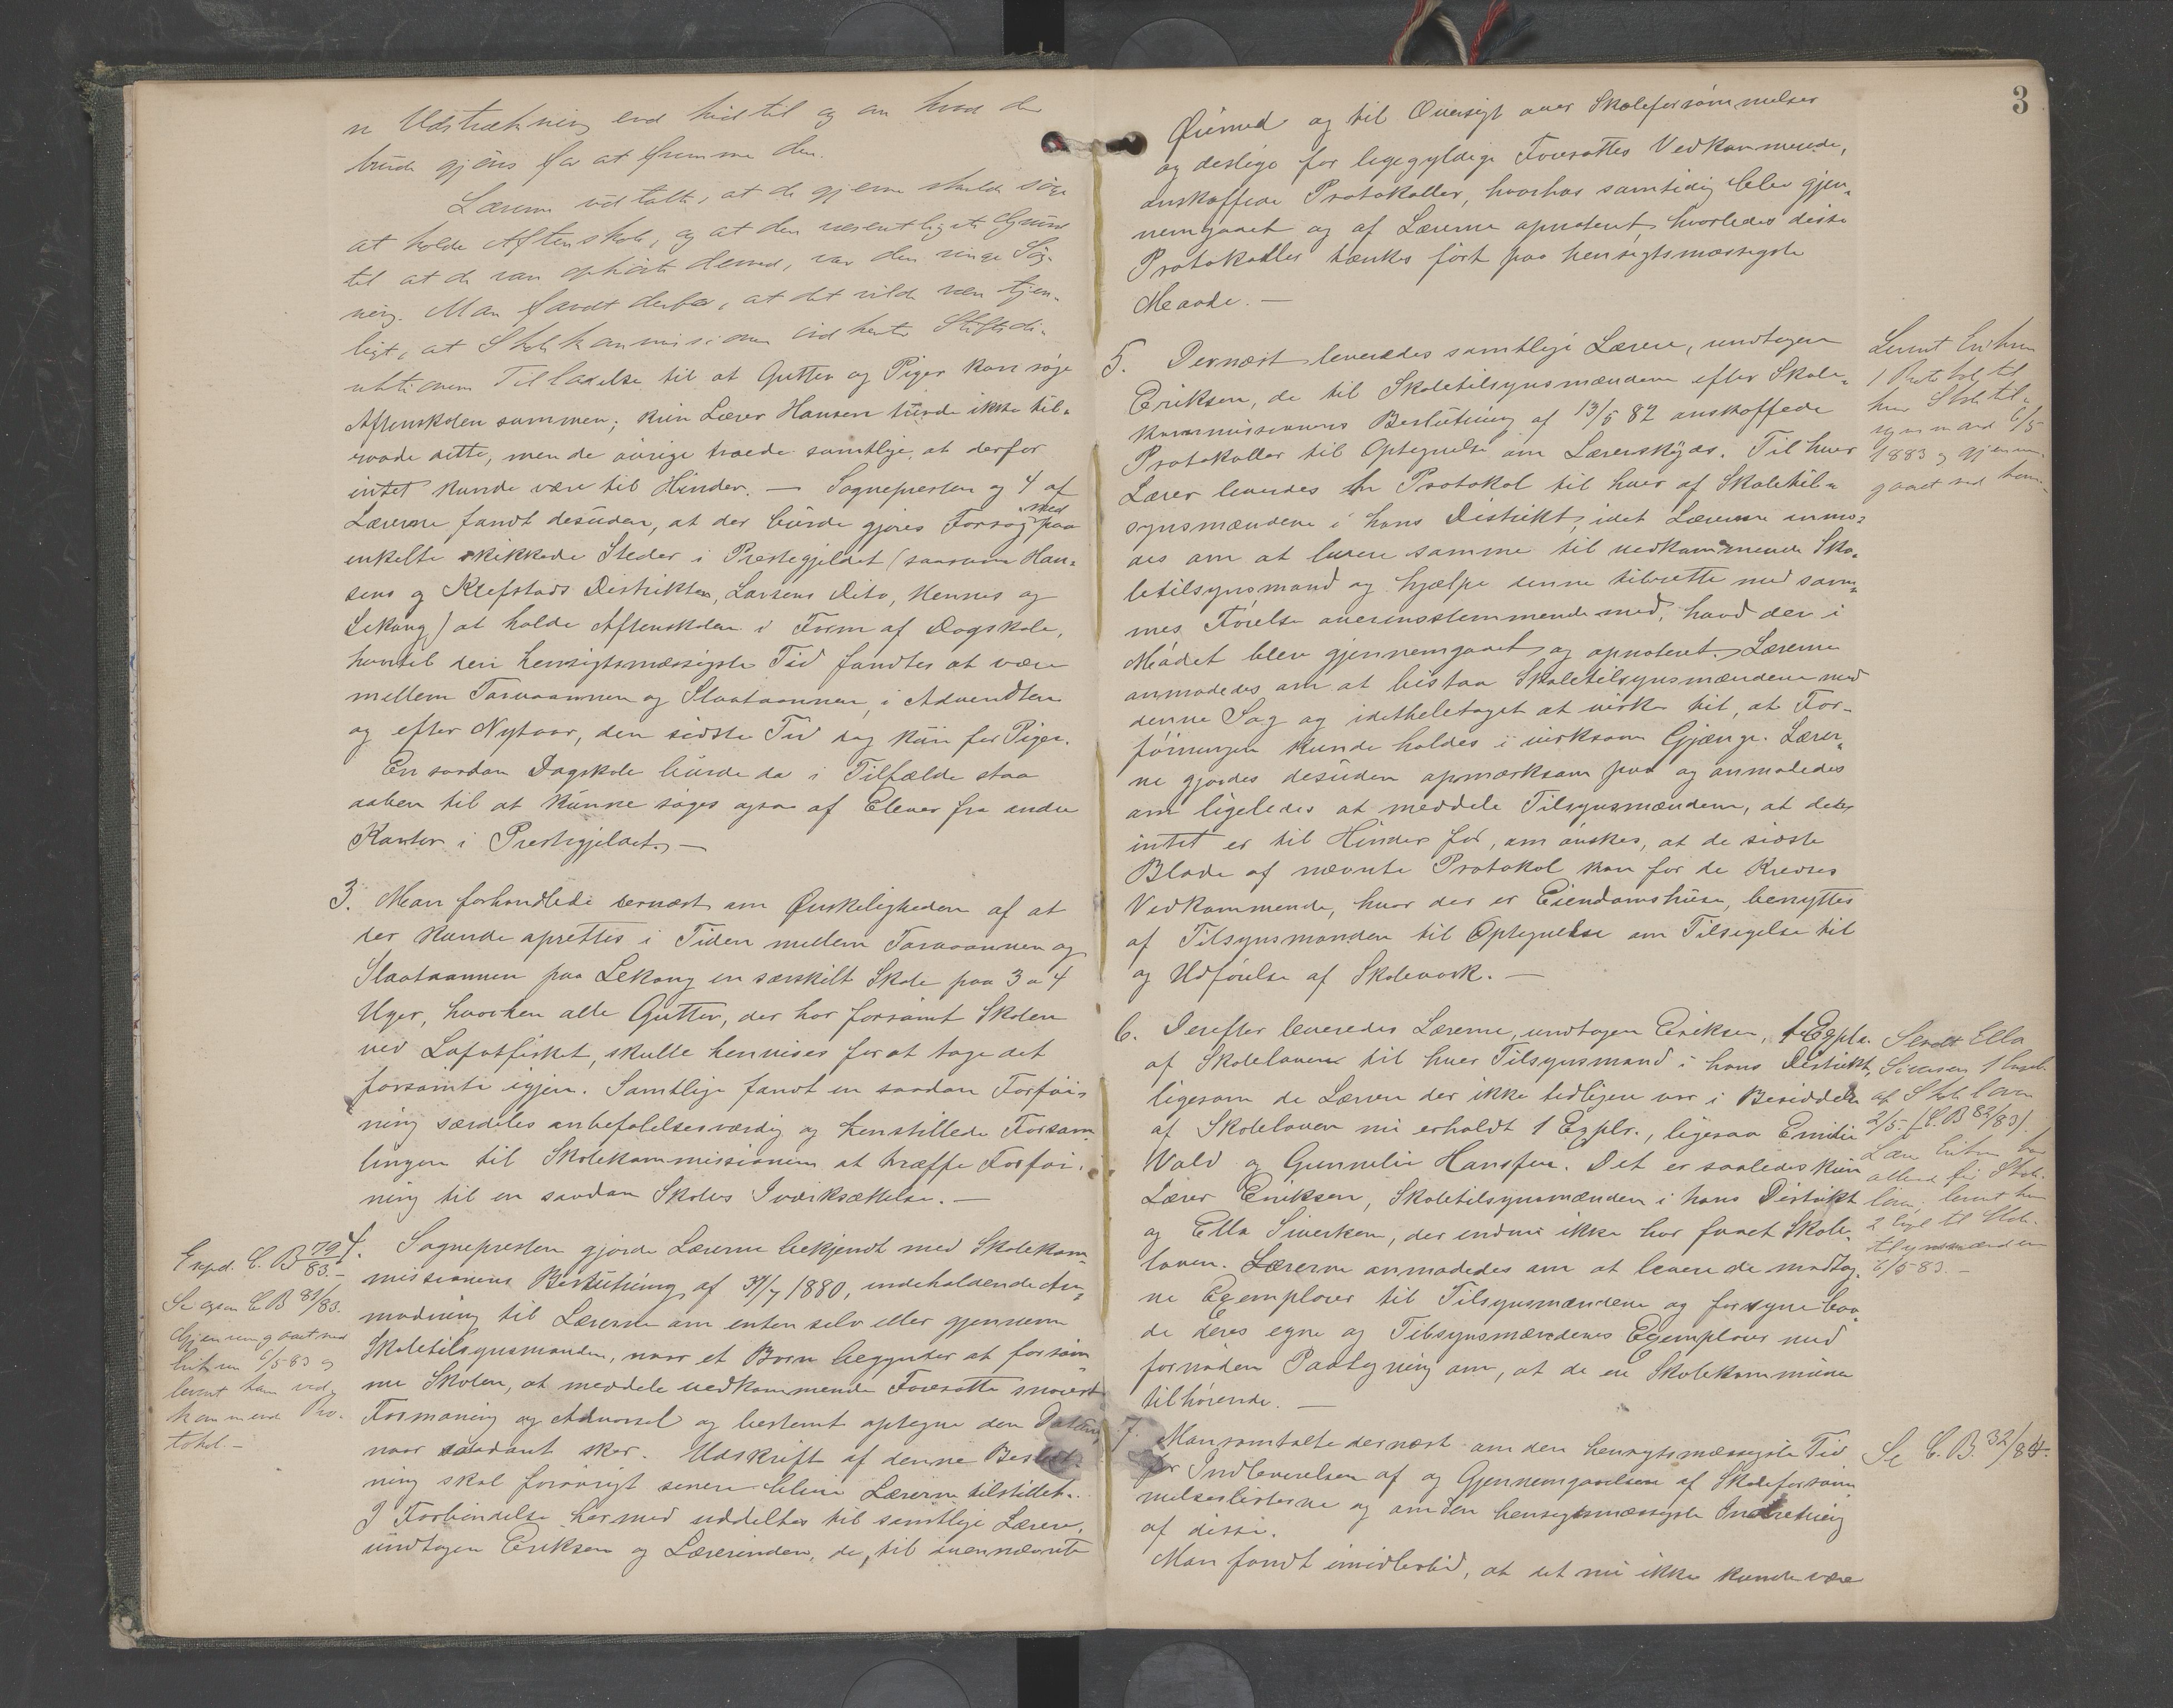 re Udstrækning end hidtil og om hvad der
burde gjøres for at fremme den.
Lærerne udtalte, at de gjerne skulde søge
at holde Aftenskole, og at den væsentligste Grund
til at de var ophørt dermed, var den ringe Søg-
ning. Man fandt derfor, at det vilde være tjen-
ligt, at Skolekommissionen indhenter Stiftsdi-
rektionens Tilladelse til at Gutter og Piger kan søge
Aftenskolen sammen; kun Lærer Hansen turde ikke til-
raade dette, men de øvrige troede samtlige, at derfor
intet kunde være til Hinder. — Sognepresten og 4 af
Lærerne fandt desuden, at der burde gjøres Forsøg med paa
enkelte skikkede Steder i Prestegjeldet (saasom Han-
sens og Klefstads Distrikter, Larsens Dito, Mennes og
Lekang) at holde Aftenskolen i Form af Dagskole,
hvortil den hensigtsmæssigste Tid fandtes at være
mellem Vaaronnen og Slaataannen, i Adventen
og efter Nytaar, den sidste Tid dog kun for Piger.
En saadan Dagskole burde da i Tilfælde staa
aaben til at kunne søges ogsaa af Elever fra andre
Kanter i Prestegjeldet. —
3. Man forhandlede dernæst om Ønskeligheden af at
der kunde oprettes i Tiden mellem Vaaronnen og
Slaataannen paa Lekang en særskilt Skole paa 3 a 4
Uger, hvorhen alle Gutter, der har forsømt Skolen
ved Lofotfisket, skulle henvises for at tage det
forsømte igjen. Samtlige fandt en saadan Forføi-
ning særdeles anbefalelsesværdig og henstillede Forsam-
lingen til Skolekommissionen at træffe Forføi-
ning til en saadan Skoles Iværksættelse. —
Exped. C. B 79/83. —
Se ogsaa C B 81/83.
Gjennemgaaet med
Eriksen 6/5 83 og
levert ham ved-
kommende Pro-
tokol. —
4. Sognepresten gjorde Lærerne bekjendt med Skolekom-
missionens Beslutning af 31/7 1880, indeholdende An-
modning til Lærerne om enten selv eller gjennem
Skoletilsynsmanden, naar et Barn begynder at forsøm-
me Skolen, at meddele vedkommende Foresatte snarest
Formaning og Advarsel og bestemt optegne den Datum
naar saadant sker. Udskrift af denne Beslut-
ning skal forøvrigt senere blive Lærerne tilstillet.
I Forbindelse hermed uddeltes til samtlige Lærere,
undtagen Eriksen og Lærerinden, de, til ovennævnte
3
Øiemed og til Oversigt over Skoleforsømmelser
og deslige for ligegyldige Foresattes Vedkommende,
anskaffede Protokoller, hvorhos samtidig blev gjen-
nemgaaet og af Lærerne opnoteret, hvorledes disse
Protokoller tænkes ført paa hensigtsmæssigste
Maade. —
5. Dernæst leveredes samtlige Lærere, undtagen
Eriksen, de til Skoletilsynsmændene efter Skole-
kommissionens Beslutning af 13/5 82 anskaffede
Protokoller til Optegnelse om Lærerskyds. Til hver
Lærer leveredes en Protokol til hver af Skoletil-
synsmændene i hans Distrikt, idet Lærerne anmo-
des om at levere samme til vedkommende Sko-
letilsynsmand og hjælpe denne tilrette med sam-
mes Førelse overensstemmende med, hvad der i
Mødet blev gjennemgaaet og opnoteret. Lærerne
anmodedes om at bistaa Skoletilsynsmændene med
denne Sag og idetheletaget at virke til, at For-
føiningen kunde holdes i virksom Gjænge. Lærer-
ne gjordes desuden opmærksom paa og anmodedes
om ligeledes at meddele Tilsynsmændene, at der
intet er til Hinder for, om ønskes, at de sidste
Blade af nævnte Protokol kan for de Kredses
Vedkommende, hvor der er Eiendomshuse, benyttes
af Tilsynsmanden til Optegnelse om Tilsigelse til
og Udførelse af Skolevask. —
Levert Eriksen
1 Protokol til
hver Skoletil-
synsmand 6/5
1883 og gjennem-
gaaet med ham. —
6. Derefter leveredes Lærerne, undtagen Eriksen, 1 Explr.
af Skoleloven til hver Tilsynsmand i hans Distrikt,
ligesom de Lærere der ikke tidligere var i Besiddelse
af Skoleloven nu erholdt 1 Explr., ligesaa Emilie
Wold og Gunnelie Hansen. Det er saaledes kun
Lærer Eriksen, Skoletilsynsmænden i hans Distrikt
og Ella Sivertsen, der endnu ikke har faaet Skole-
loven. Lærerne anmodedes om at levere de modtag-
ne Exemplarer til Tilsynsmændene og forsyne baa-
de deres egne og Tilsynsmændenes Exemplarer med
fornøden Paategning om, at de ere Skolekommunen
tilhørende. —
Sendt Ella
Sivertsen 1 Expl.
af Skoleloven
2/5. (C. B 82/83).
Lærer Eriksen har
allerede før Skole-
loven, levert ham
2 Expl til Skole-
tilsynsmændene
6/5 83. —
7. Man samtalte dernæst om den hensigtsmæssigste Tid
for Indleverelsen af og Gjennemgaaelsen af Skoleforsøm-
melseslisterne og om den hensigtsmæssigste Indretning
af disse.
Se C. B. 32/84.
Man fandt imidlertid, at det nu ikke kunde være